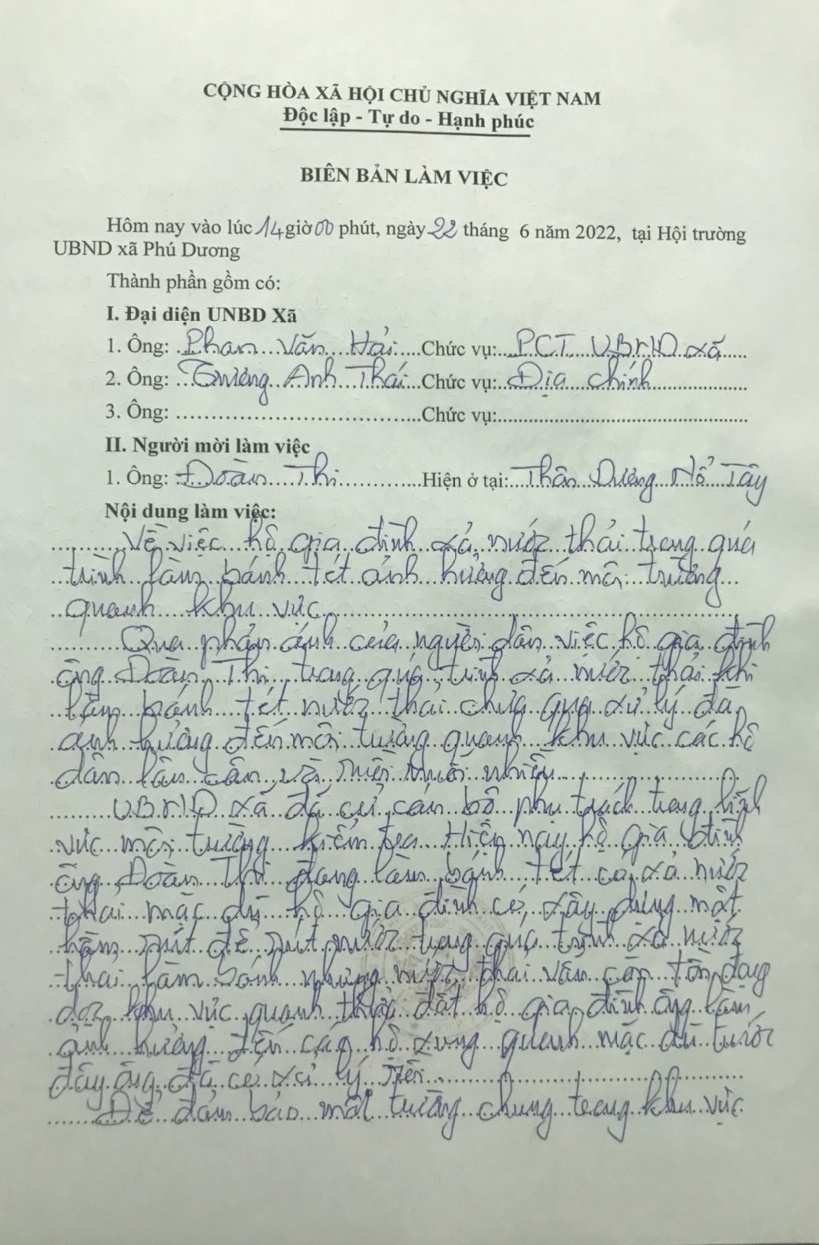 CỘNG HÒA XÃ HỘI CHỦ NGHĨA VIỆT NAM
Độc lập - Tự do - Hạnh phúc
BIÊN BẢN LÀM VIỆC
Hôm nay vào lúc 14 giờ 00 phút, ngày 22 tháng 6 năm 2022, tại Hội trường
UBND xã Phú Dương
Thành phần gồm có:
I. Đại diện UNBD Xã
1. Ông: Phan Văn Hải Chức vụ: PCT UBND xã
2. Ông: Trương Anh Thái Chức vụ: Địa chính
3. Ông: Chức vụ:
II. Người mời làm việc
1. Ông: Đoàn Thi Hiện ở tại: Thôn Dương Nổ Tây
Nội dung làm việc:
Về việc hộ gia đình xả nước thải trong quá
trình làm bánh tét ảnh hưởng đến môi trường
quanh khu vực
Qua phản ánh của người dân việc hộ gia đình
ông Đoàn Thi trong quá trình xả nước thải khi
làm bánh tét nước thải chưa qua xử lý đã
ảnh hưởng đến môi trường quanh khu vực các hộ
dân lân cận, và
UBND xã đã cử cán bộ phụ trách trong lĩnh
vực môi trường kiểm tra Hiện nay hộ gia đình
ông Đoàn Thi đang làm bánh tét có xả nước
thải mặc dù hộ gia đình có xây dựng một
hầm rút để rút nước trong quá trình xả nước
thải làm bánh nhưng nước thải vẫn còn tồn đọng
khu vực quanh đất hộ gia đình ông làm
ảnh hưởng đến các hộ xung quanh mặc dù trước
đây ông đã có xử lý
Để đảm bảo môi trường chung trong khu vực